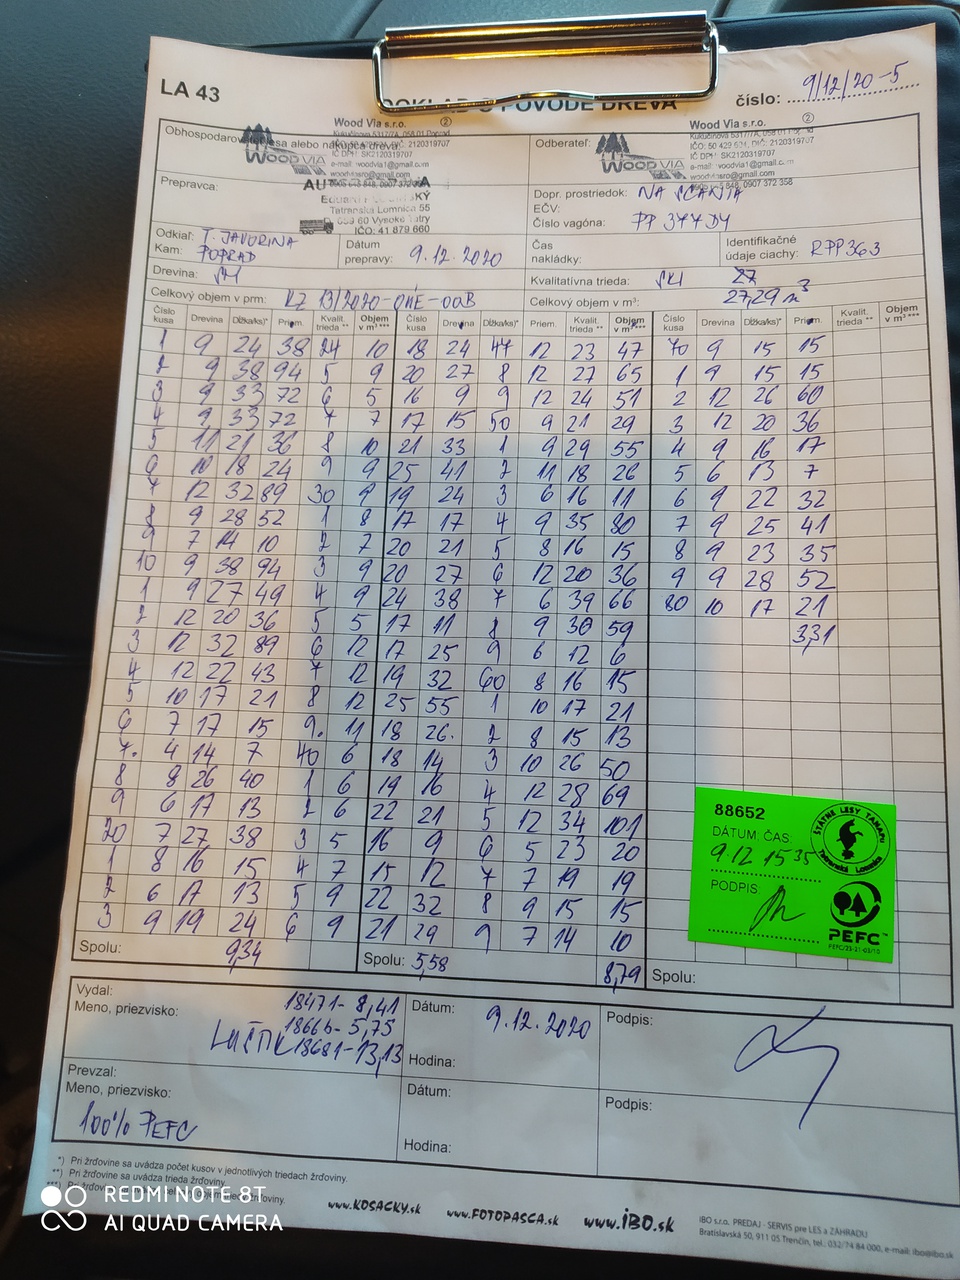 LA 43
DOKLAD O PÔVODE DREVA
číslo: 9/12/20-5
Wood Via s.r.o. ②
Kukučínova 5317/7A, 058 01 Poprad
WOOD VIA
e-mail: woodvia1@gmail.com
Odberateľ:
Wood Via s.r.o. ②
IČO: 50 429 531, DIČ: 2120319707
IČ DPH: SK2120319707
WOOD VIA
e-mail: woodvia1@gmail.com
Prepravca:
Tatranská Lomnica 55
059 60 Vysoké Tatry
IČO: 41 879 660
Dopr. prostriedok: NA SCANIA
EČV:
Číslo vagóna: PP 377DY
Odkiaľ: T. JAVORINA
Kam: POPRAD
Dátum prepravy: 9.12.2020
Čas nakládky:
Identifikačné údaje ciachy: RPP363
Drevina: SM
Kvalitatívna trieda: SKI
Celkový objem v prm: KZ 13/2020-ONE-00B
Celkový objem v m³: 27,29 m³
Číslo kusa Drevina Dĺžka/ks)* Priem. Kvalit. trieda ** Objem v m³ *** Číslo kusa Drevina Dĺžka/ks)* Priem. Kvalit. trieda ** Objem v m³ *** Číslo kusa Drevina Dĺžka/ks)* Priem. Kvalit. trieda ** Objem v m³ ***
1 9 24 38 24 10 18 24 47 12 23 47 70 9 15 15
2 9 38 94 5 9 20 27 8 12 27 65 1 9 15 15
3 9 33 72 6 5 16 9 9 12 24 51 2 12 26 60
4 9 33 72 7 7 17 15 50 9 21 29 3 12 20 36
5 11 21 36 8 10 21 33 1 9 29 55 4 9 16 17
6 10 18 24 9 9 25 41 2 11 18 26 5 6 13 7
7 12 32 89 30 9 19 24 3 6 16 11 6 9 22 32
8 9 28 52 1 8 17 17 4 9 35 80 7 9 25 41
9 7 14 10 2 7 20 21 5 8 16 15 8 9 23 35
10 9 38 94 3 9 20 27 6 12 20 36 9 9 28 52
1 9 27 49 4 9 24 38 7 6 39 66 80 10 17 21
2 12 20 36 5 5 17 11 8 9 30 59 3,31
3 12 32 89 6 12 17 25 9 6 12 6
4 12 22 43 7 12 19 32 60 8 16 15
5 10 17 21 8 12 25 55 1 10 17 21
6 7 17 15 9. 11 18 26. 2 8 15 13
7. 4 14 7 40 6 18 14 3 10 26 50
8 8 26 40 1 6 19 16 4 12 28 69
9 6 17 13 2 6 22 21 5 12 34 101
20 7 27 38 3 5 16 9 6 5 23 20
1 8 16 15 4 7 15 12 7 7 19 19
2 6 17 13 5 9 22 32 8 9 15 15
3 9 19 24 6 9 21 29 9 7 14 10
Spolu: 9,34
Spolu: 5,58
8,79
Spolu:
88652
DÁTUM ČAS:
9.12 15 35
PODPIS:
ŠTÁTNE LESY TANAPU
Tatranská Lomnica
PEFC™
Vydal:
Meno, priezvisko:
18471- 8,41
18666- 5,75
18681-13,13
Dátum: 9.12.2020
Hodina:
Podpis:
Prevzal:
Meno, priezvisko:
100% PEFC
Dátum:
Hodina:
Podpis:
*) Pri žrďovine sa uvádza počet kusov v jednotlivých triedach žrďoviny.
**) Pri žrďovine sa uvádza trieda žrďoviny.
REDMI NOTE 8T
AI QUAD CAMERA
www.KOSACKY.sk
www.FOTOPASCA.sk
www.iBO.sk
IBO s.r.o. PREDAJ - SERVIS pre LES a ZÁHRADU
Bratislavská 50, 911 05 Trenčín, tel.: 032/74 84 000, e-mail: ibo@ibo.sk